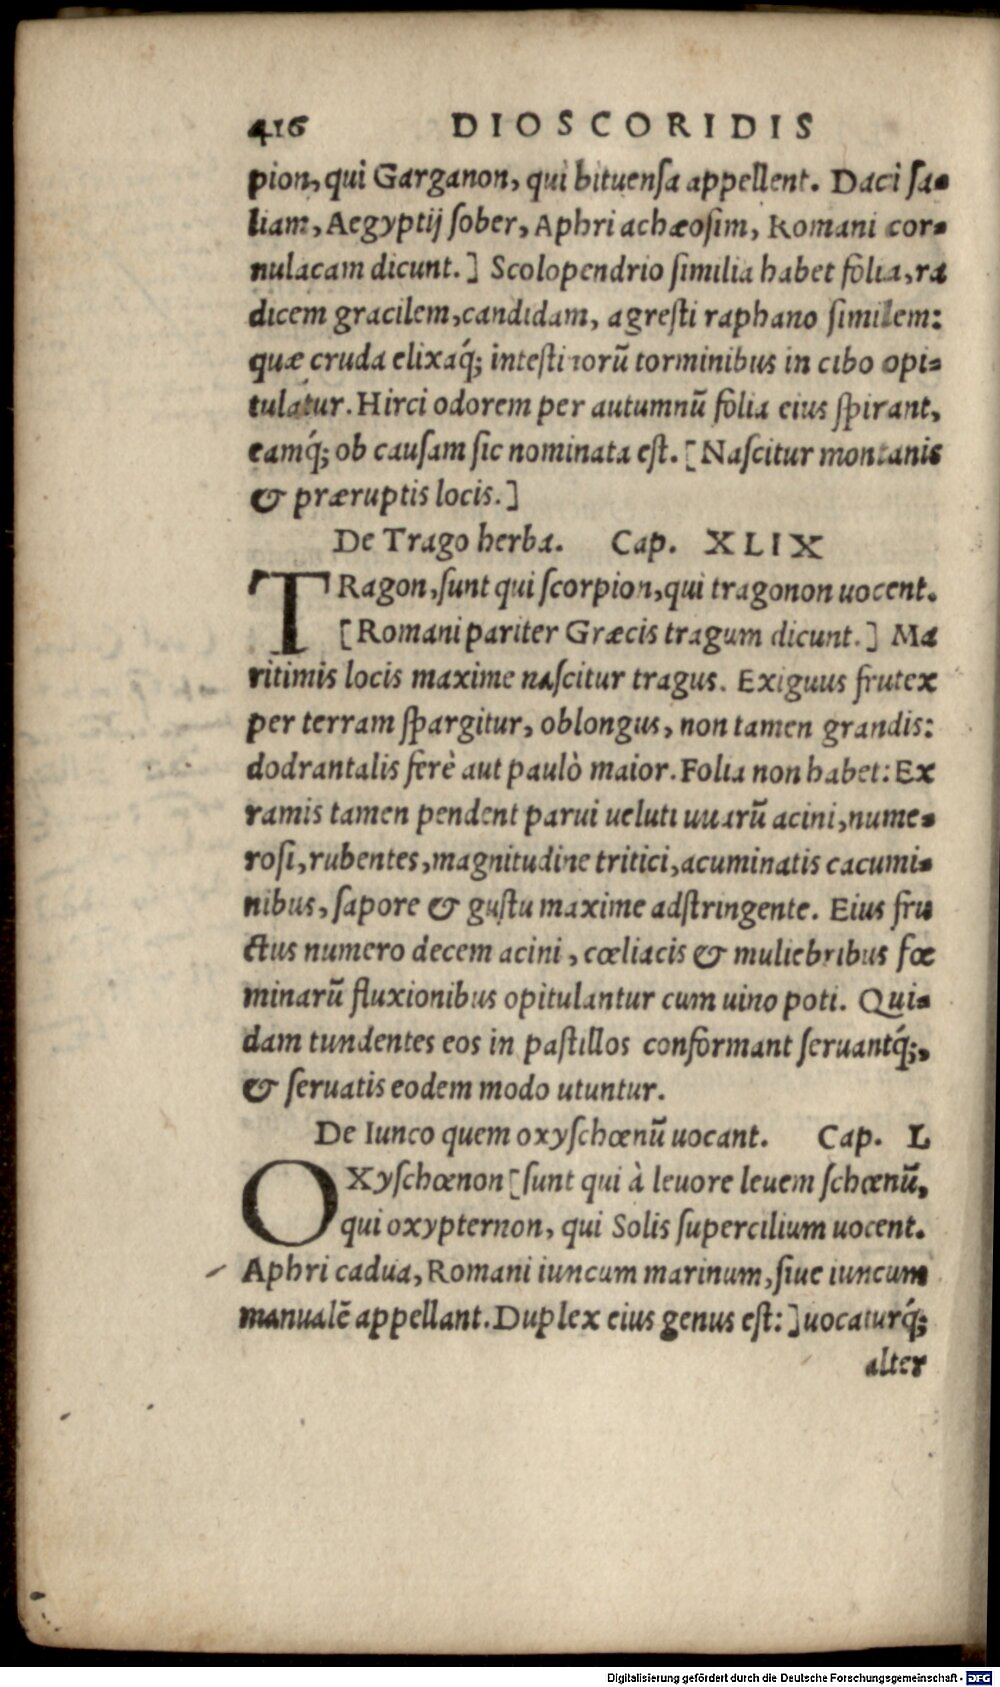 416 DIOSCORIDIS
pion, qui Garganon, qui bituenſa appellent. Daci ſa-
liam, Aegyptij ſober, Aphri achæoſim, Romani cor-
nulacam dicunt.] Scolopendrio ſimilia habet folia, ra
dicem gracilem, candidam, agreſti raphano ſimilem:
quæ cruda elixaq́; inteſtinorũ torminibus in cibo opi-
tulatur. Hirci odorem per autumnũ folia eius ſpirant,
eamq́; ob cauſam ſic nominata eſt. [Naſcitur montanis
& præruptis locis.]
De Trago herba. Cap. XLIX
TRagon, ſunt qui ſcorpion, qui tragonon uocent.
[Romani pariter Græcis tragum dicunt.] Ma
ritimis locis maxime naſcitur tragus. Exiguus frutex
per terram ſpargitur, oblongus, non tamen grandis:
dodrantalis ferè aut paulò maior. Folia non habet: Ex
ramis tamen pendent parui ueluti uuarũ acini, nume-
roſi, rubentes, magnitudine tritici, acuminatis cacumi-
nibus, ſapore & guſtu maxime adſtringente. Eius fru
ctus numero decem acini, cœliacis & muliebribus fœ
minarũ fluxionibus opitulantur cum uino poti. Qui-
dam tundentes eos in paſtillos conformant ſeruantq́;,
& ſeruatis eodem modo utuntur.
De Iunco quem oxyſchœnũ uocant. Cap. L
OXyſchœnon [ſunt qui à leuore leuem ſchœnũ,
qui oxypternon, qui Solis ſupercilium uocent.
Aphri cadua, Romani iuncum marinum, ſiue iuncum
manualẽ appellant. Duplex eius genus eſt:] uocaturq́;
alter
Digitalisierung gefördert durch die Deutsche Forschungsgemeinschaft - DFG